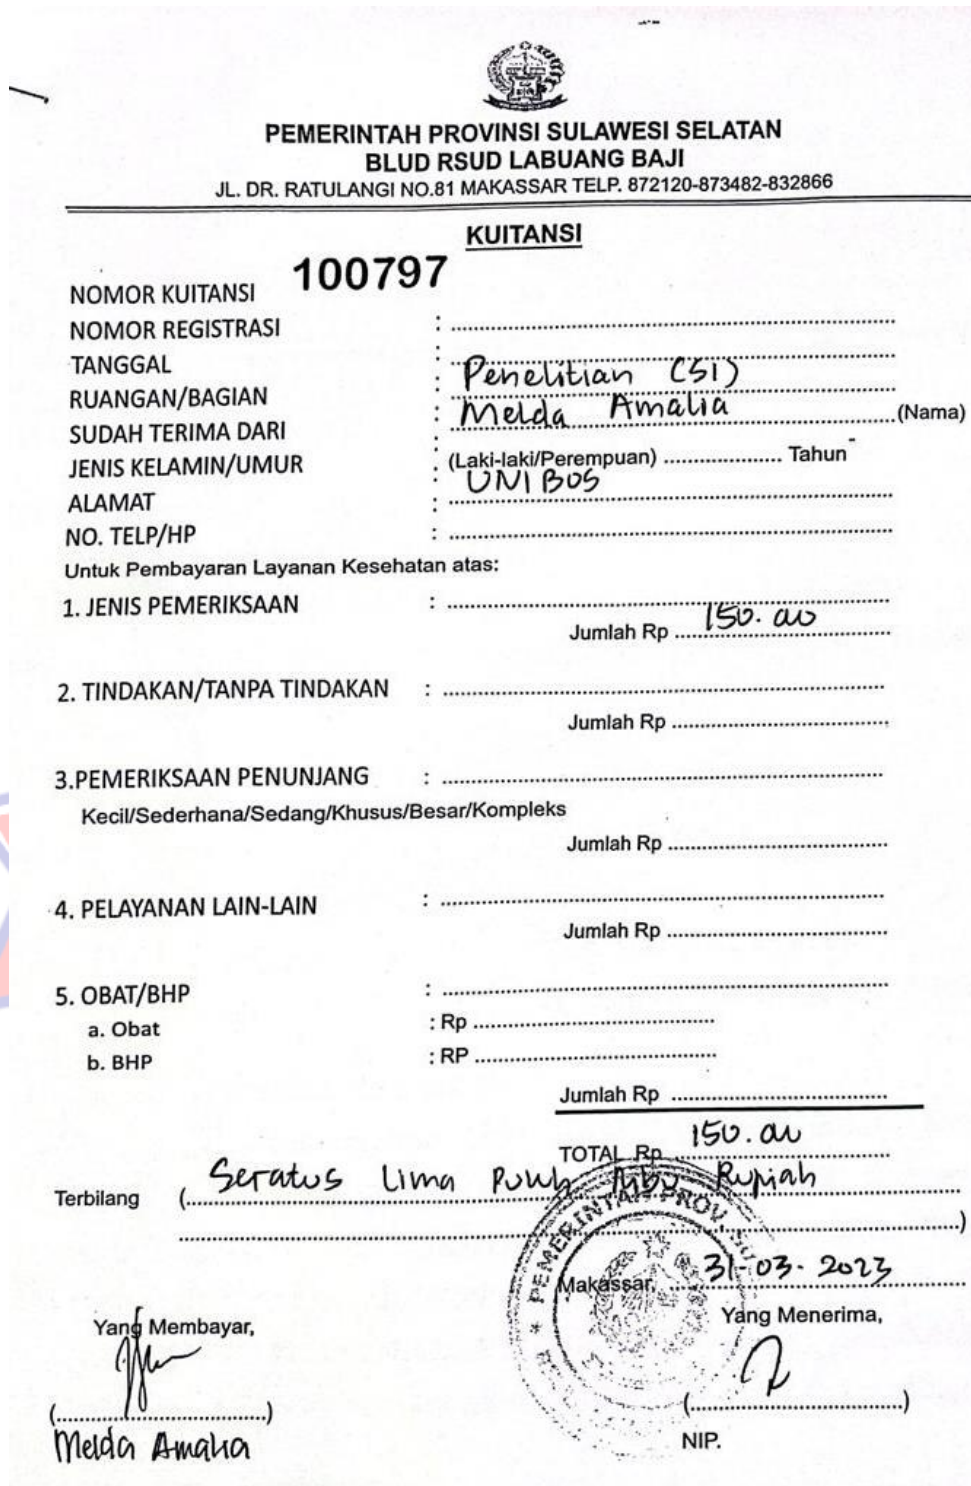 PEMERINTAH PROVINSI SULAWESI SELATAN
BLUD RSUD LABUANG BAJI
JL. DR. RATULANGI NO.81 MAKASSAR TELP. 872120-873482-832866
KUITANSI
NOMOR KUITANSI 100797
NOMOR REGISTRASI : ........................
TANGGAL : ........................
RUANGAN/BAGIAN : Penelitian (S1)
SUDAH TERIMA DARI : Melda Amalia (Nama)
JENIS KELAMIN/UMUR : (Laki-laki/Perempuan) .................... Tahun
ALAMAT : UNIBOS
NO. TELP/HP : ........................
Untuk Pembayaran Layanan Kesehatan atas:
1. JENIS PEMERIKSAAN : ........................
Jumlah Rp 150.000
2. TINDAKAN/TANPA TINDAKAN : ........................
Jumlah Rp ........................
3.PEMERIKSAAN PENUNJANG : ........................
Kecil/Sederhana/Sedang/Khusus/Besar/Kompleks
Jumlah Rp ........................
4. PELAYANAN LAIN-LAIN : ........................
Jumlah Rp ........................
5. OBAT/BHP : ........................
a. Obat : Rp ........................
b. BHP : RP ........................
Jumlah Rp ........................
TOTAL Rp 150.000
Terbilang (Seratus Lima Puluh Ribu Rupiah
........................)
PEMERINTAH PROV. SU
Makassar, 31-03-2023
Yang Membayar, Yang Menerima,
(........................) (........................)
Melda Amalia NIP.